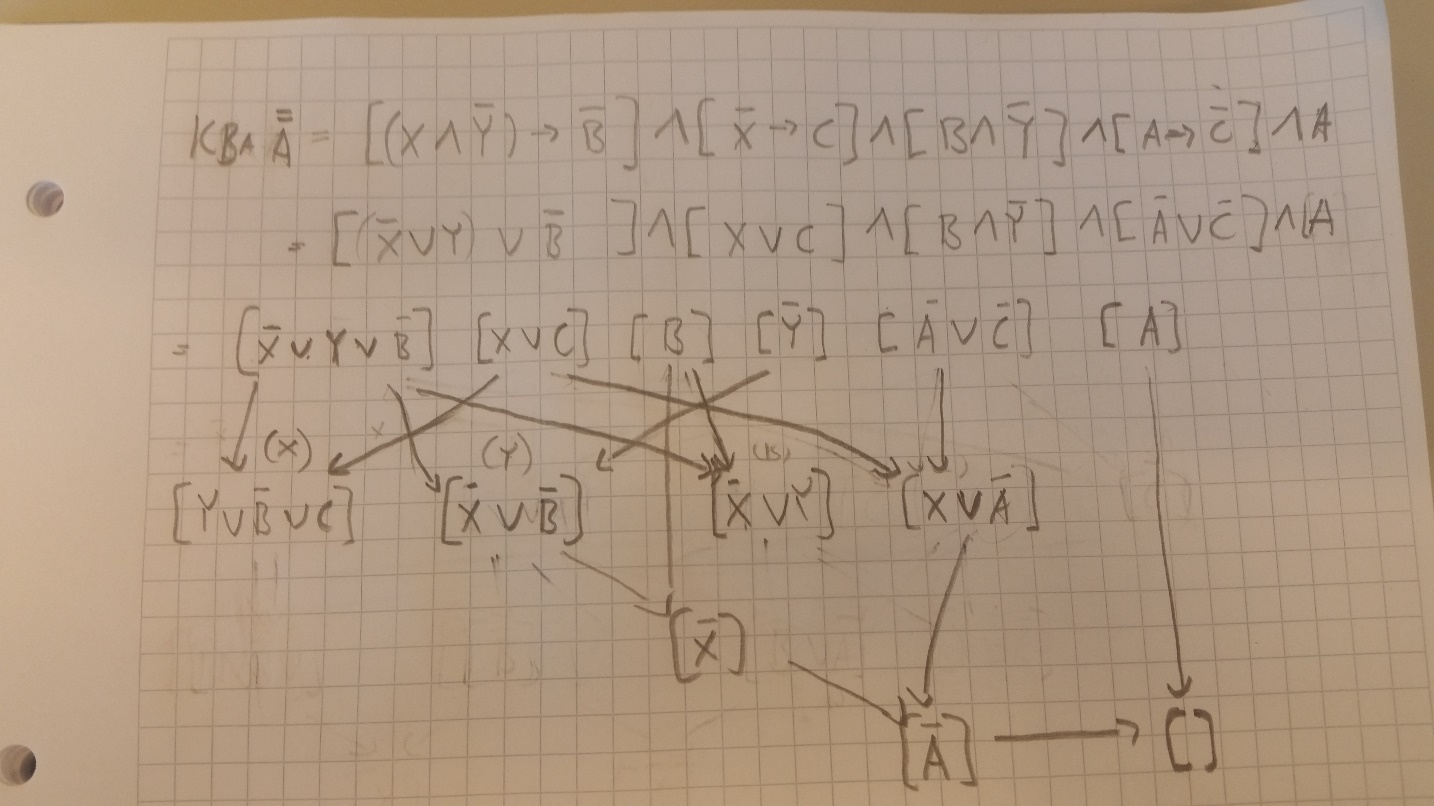 KB∧A̿ = [(X∧Ȳ)→ B̄] ∧[ X̄→C]∧[ B∧Ȳ] ∧[ A→ C̄]∧A
= [(X̄∨Y) ∨ B̄ ]∧[ X∨C] ∧[ B∧Ȳ] ∧[ Ā∨C̄]∧[A
= [X̄∨Y∨B̄] [X∨C] [B] [Ȳ] [Ā∨C̄] [A]
(X) (Y) (B)
[Y∨B̄∨C] [X̄∨B̄] [X̄∨Y] [X∨Ā]
[X̄]
[Ā] → []